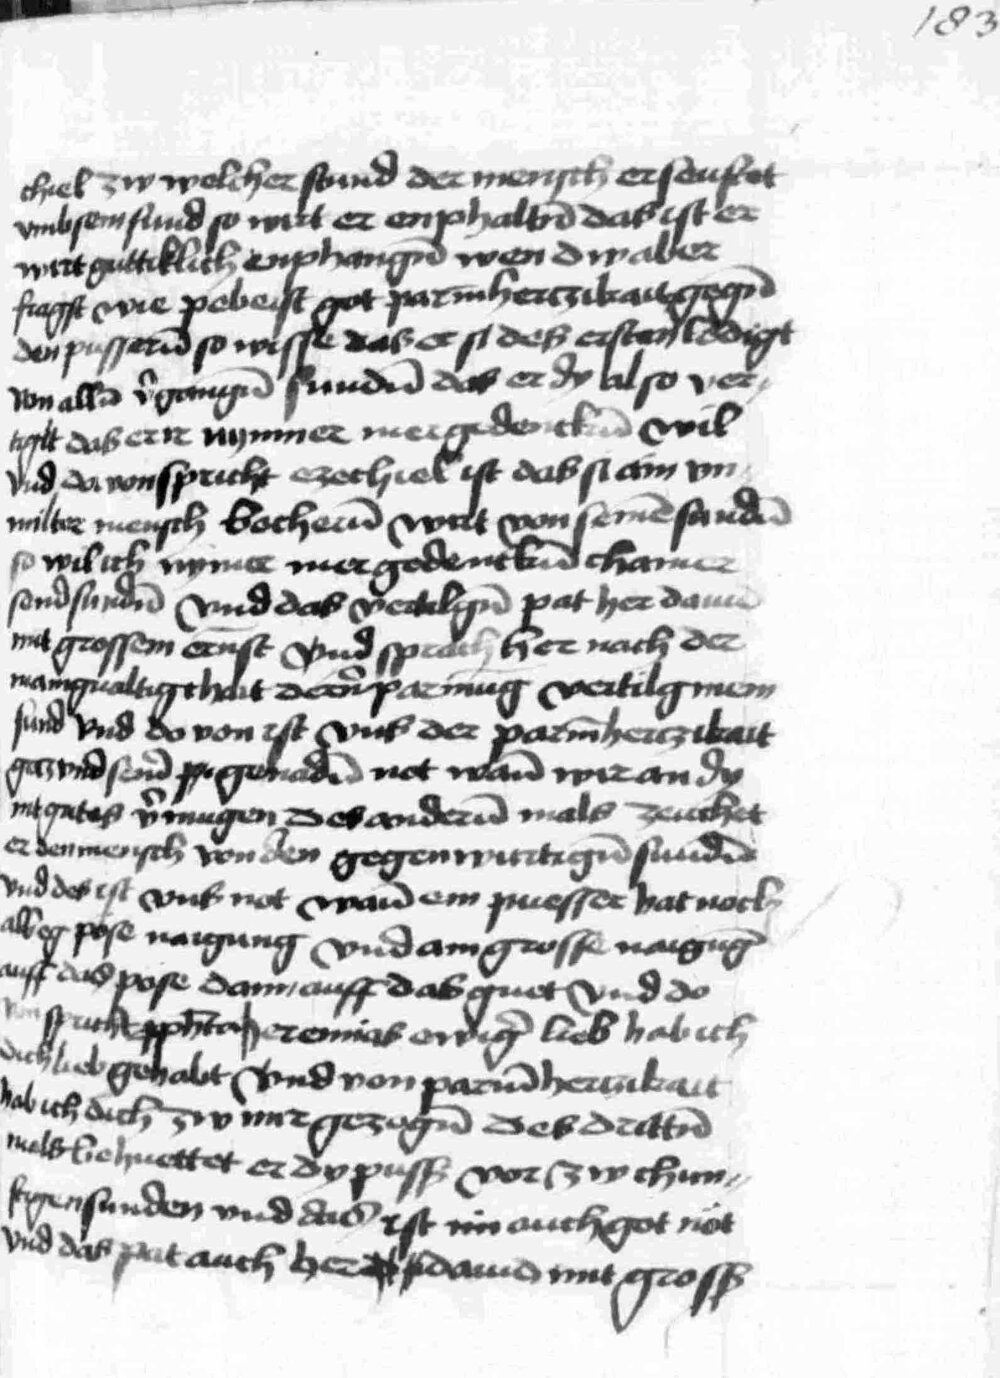 183
chiel zw welcher stund der mensch erseufczt
vmb sein sund so wirt er enphaltn̄ das ist er
wirt guttiklich enphangn̄ wen dw aber
fragst wie pebeist got parmhertzikait gegn̄
den pussern̄ so wisse das er si des ersten ledigt
von alln̄ v̄gangn̄ sundn̄ das er dy also ver
tiligt das er ir nymmer mer gedenckn̄ wil
vnd do von spricht ezechiel ist das si ain vn
milter mensch bechern̄ wirt von seinē sundn̄
so wil ich nymer mer gedenckn̄ chainer
seind sundn̄ vnd das vertilgn̄ pat her dauid
mit grossem ernst vnd sprach her nach der
manigualtigchait deinˀ parmūg vertilg mein
sund vnd do von ist vns der parmhertzikait
gotz vnd sein̄ genadn̄ not wan̄ wir an dy
nit gutes v̄mugen Des andern̄ mals zeuchet
er den mensch von den gegenwurtign̄ sundn̄
vnd des ist vns not wan̄ ein puesser hat noch
albeg pose naigung vnd ain grosse naigūg
auff das pose dann auff das guet vnd do
von spricht Jeremias ewigˀ lieb hab ich
dich lieb gehabt vnd von parmhertzikait
hab ich dich zw mir gezogn̄ Des drittn̄
mals behuettet er dy puss vor zw chun
ftigen sunden vnd das ist im auch got not
vnd das pat auch her dauid mit gross